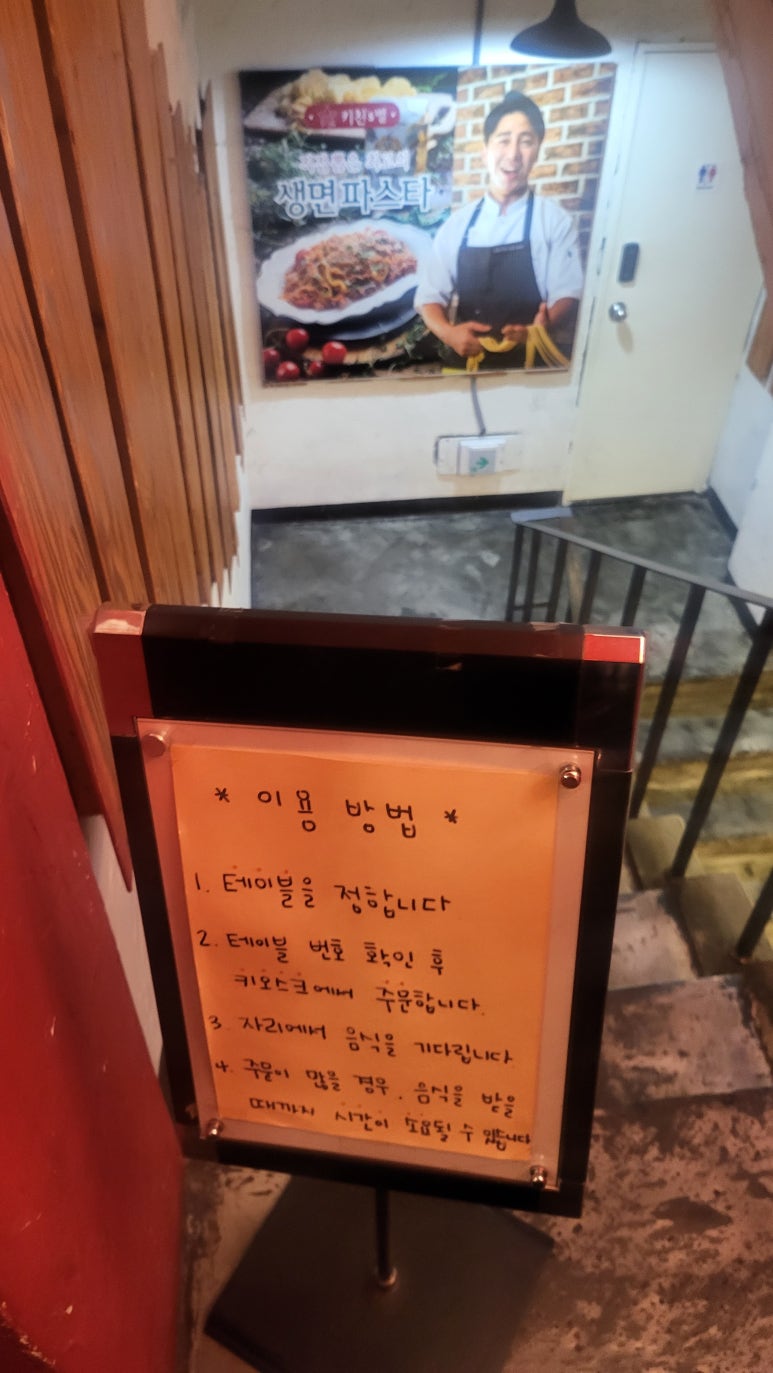 키친's랩
생면파스타
* 이용 방법 *
1. 테이블을 정합니다
2. 테이블 번호 확인 후
키오스크에서 주문합니다.
3. 자리에서 음식을 기다립니다
4. 주문이 많을 경우, 음식을 받을
때까지 시간이 소요될 수 있습니다